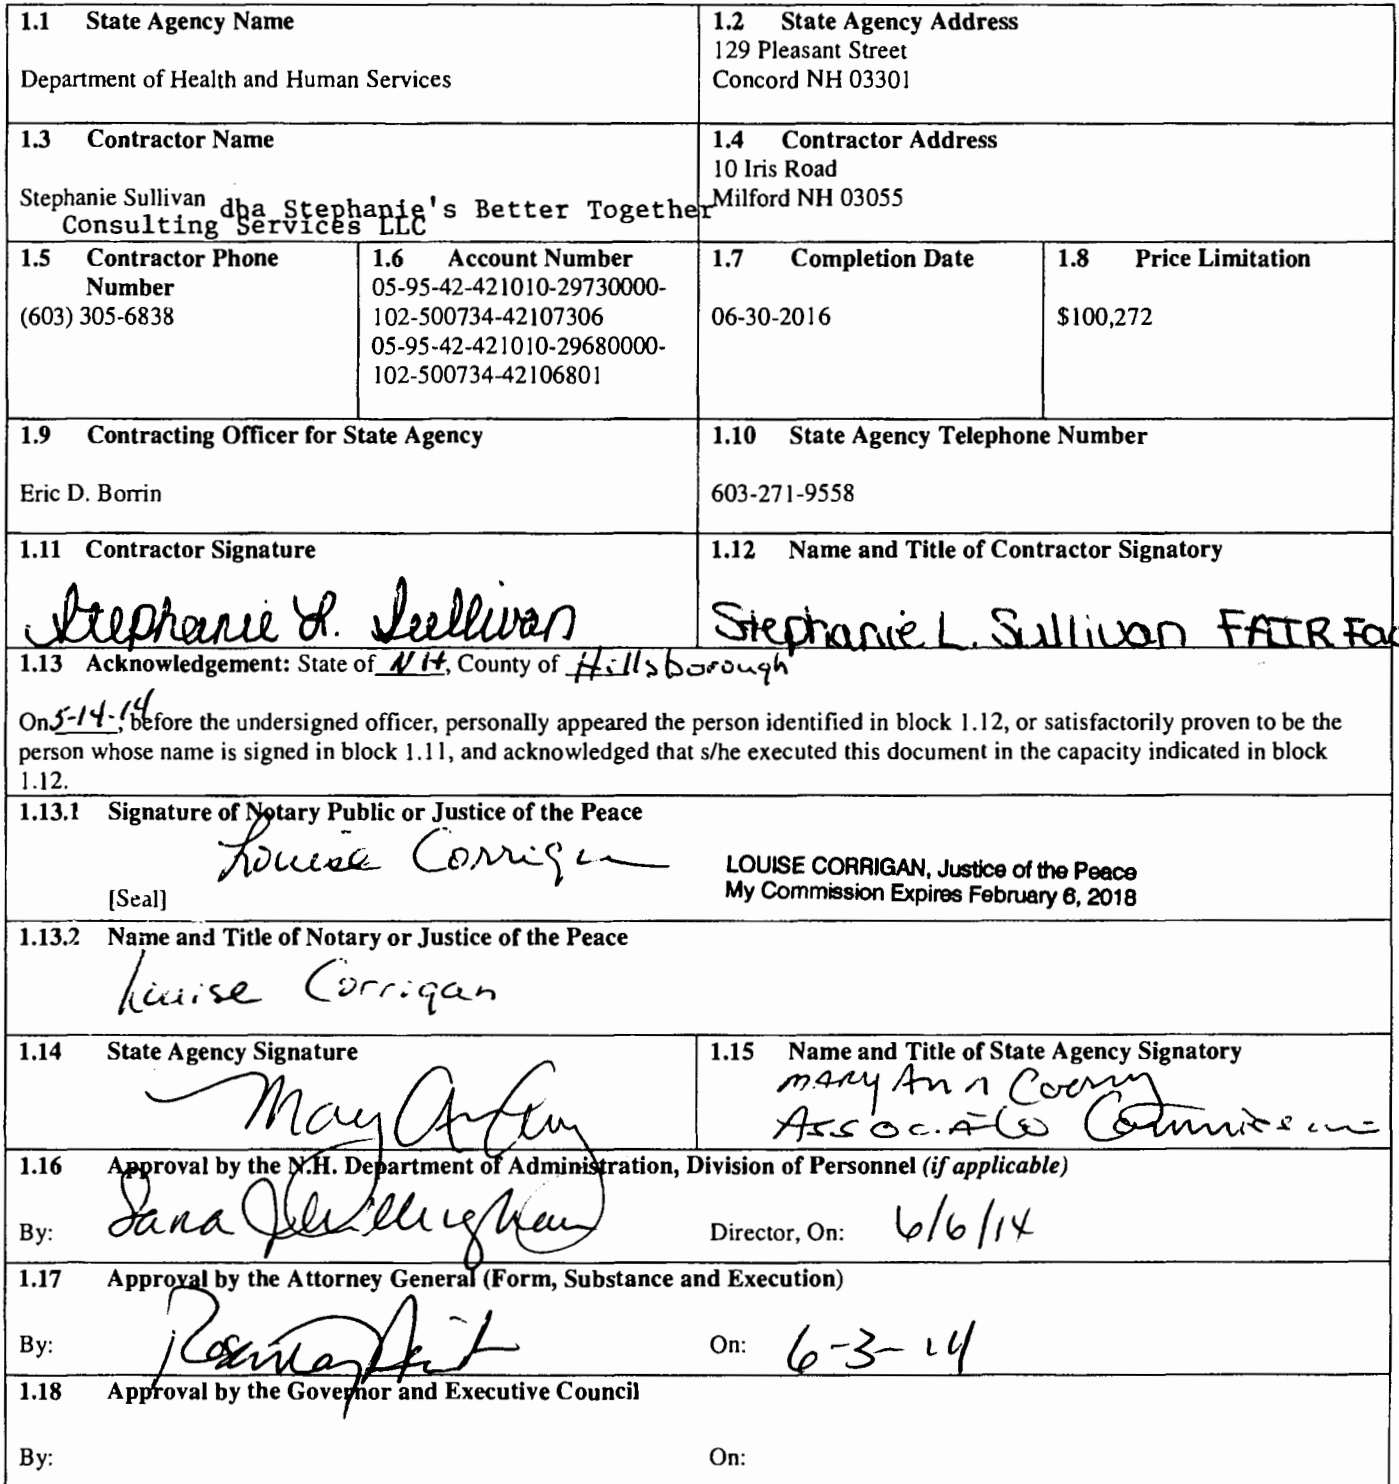 1.1 State Agency Name
Department of Health and Human Services
1.2 State Agency Address
129 Pleasant Street
Concord NH 03301
1.3 Contractor Name
Stephanie Sullivan dba Stephanie's Better Together
Consulting Services LLC
1.4 Contractor Address
10 Iris Road
Milford NH 03055
1.5 Contractor Phone
Number
(603) 305-6838
1.6 Account Number
05-95-42-421010-29730000-
102-500734-42107306
05-95-42-421010-29680000-
102-500734-42106801
1.7 Completion Date
06-30-2016
1.8 Price Limitation
$100,272
1.9 Contracting Officer for State Agency
Eric D. Borrin
1.10 State Agency Telephone Number
603-271-9558
1.11 Contractor Signature
Stephanie L. Sullivan
1.12 Name and Title of Contractor Signatory
Stephanie L. Sullivan FAIR Fac
1.13 Acknowledgement: State of NH, County of Hillsborough
On 5-14-14, before the undersigned officer, personally appeared the person identified in block 1.12, or satisfactorily proven to be the
person whose name is signed in block 1.11, and acknowledged that s/he executed this document in the capacity indicated in block
1.12.
1.13.1 Signature of Notary Public or Justice of the Peace
Louise Corrigan
[Seal]
LOUISE CORRIGAN, Justice of the Peace
My Commission Expires February 6, 2018
1.13.2 Name and Title of Notary or Justice of the Peace
Louise Corrigan
1.14 State Agency Signature
Mary Ann
1.15 Name and Title of State Agency Signatory
Mary Ann Cooney
Associate Commissioner
1.16 Approval by the N.H. Department of Administration, Division of Personnel (if applicable)
By: Sara J Willingham Director, On: 6/6/14
1.17 Approval by the Attorney General (Form, Substance and Execution)
By: Rosemary On: 6-3-14
1.18 Approval by the Governor and Executive Council
By: On: